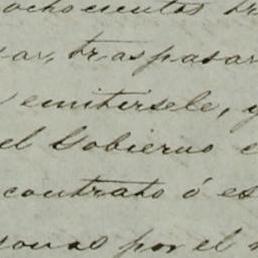 ochocientos tr
sar, traspasar
emitirsele, y
el Gobierno e
contrato ó es
sonas por el